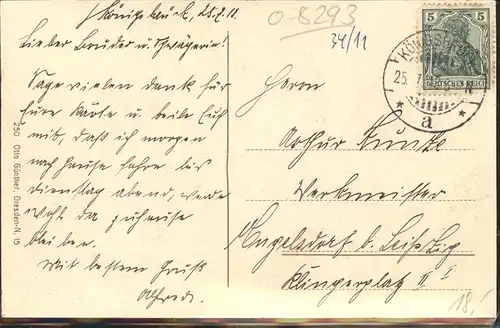 Königsbrück, 25.7.11.
Lieber Bruder u. Schwägerin!
Sage vielen Dank für
Eure Karte u. teile Euch
mit, daß ich morgen
nach Hause fahre bis
Dienstag abend, werde
wohl da zuhause
bleiben.
Mit bestem Gruß
Alfred.
250 Otto Günther, Dresden-N. 15
0-8293
34/11
5 5
DEUTSCHES REICH
25. 7.
a
Herrn
Arthur Kuntze
Werkmeister
Engelsdorf b. Leipzig
Klingerplatz II I
18,-